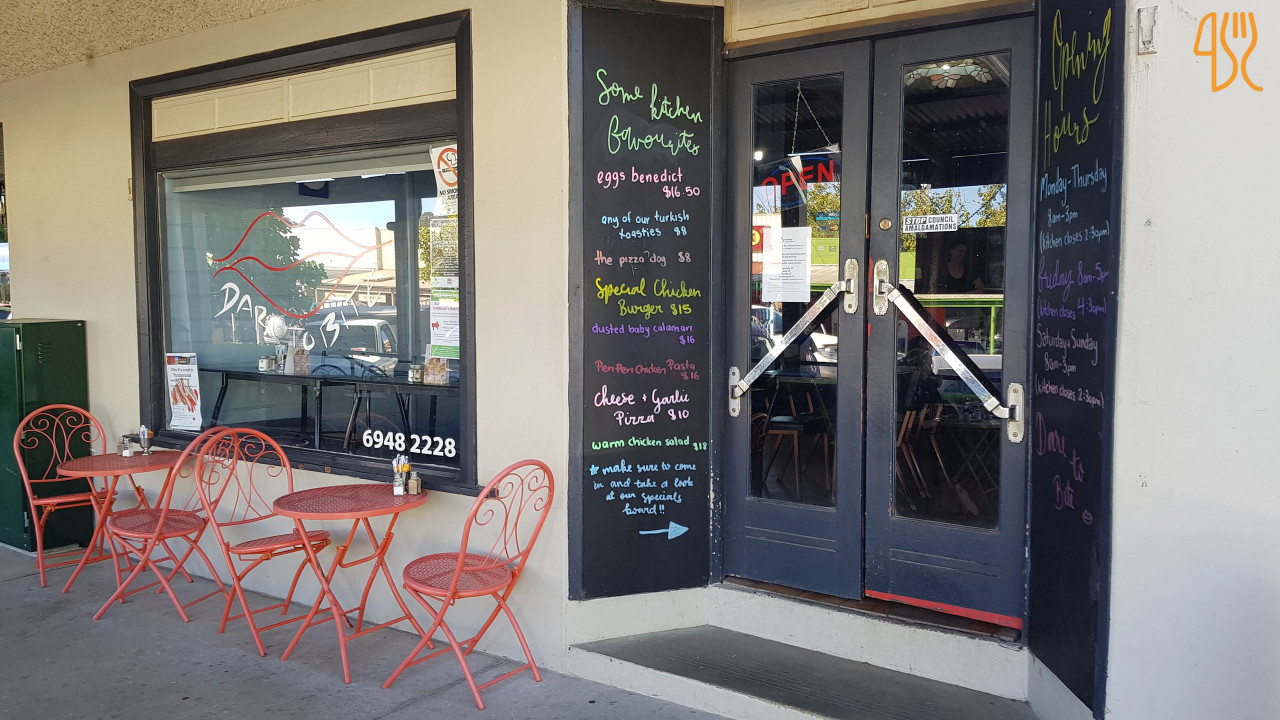 DARE TO BITE
NO SMOKING
6948 2228
Some kitchen
favourites
eggs benedict
$16.50
any of our turkish
toasties $8
the pizza dog $8
Special Chicken
Burger $15
dusted baby calamari
$16
Peri Peri Chicken Pasta
$16
Cheese + Garlic
Pizza $10
warm chicken salad $18
* make sure to come
in and take a look
at our specials
board!!
OPEN
STOP COUNCIL
AMALGAMATIONS
Opening
Hours
Monday-Thursday
8am-3pm
(kitchen closes 2:30pm)
Friday 8am-5p
(kitchen closes 4:30pm)
Saturday+Sunday
8am-3pm
(kitchen closes 2:30pm)
Dare to
Bite